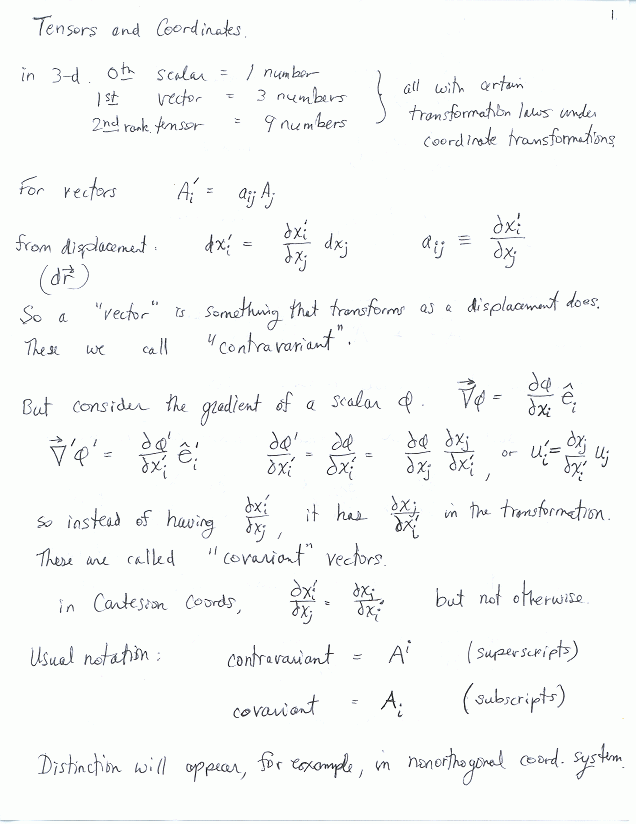 1.
Tensors and Coordinates.
in 3-d. 0th scalar = 1 number
1st vector = 3 numbers
2nd rank tensor = 9 numbers
} all with certain
transformation laws under
coordinate transformations
For vectors Aᵢ′ = aᵢⱼ Aⱼ
from displacement: dxᵢ′ = ∂xᵢ′/∂xⱼ dxⱼ aᵢⱼ ≡ ∂xᵢ′/∂xⱼ
(dr⃗)
So a "vector" is something that transforms as a displacement does.
These we call "contravariant".
But consider the gradient of a scalar φ. ∇⃗φ = ∂φ/∂xᵢ êᵢ
∇⃗′φ′ = ∂φ′/∂xᵢ′ êᵢ′ ∂φ′/∂xᵢ′ = ∂φ/∂xᵢ′ = ∂φ/∂xⱼ ∂xⱼ/∂xᵢ′, or uᵢ′ = ∂xⱼ/∂xᵢ′ uⱼ
so instead of having ∂xᵢ′/∂xⱼ, it has ∂xⱼ/∂xᵢ′ in the transformation.
These are called "covariant" vectors.
in Cartesian coords, ∂xᵢ′/∂xⱼ = ∂xⱼ/∂xᵢ′ but not otherwise.
Usual notation: contravariant = Aⁱ (superscripts)
covariant = Aᵢ (subscripts)
Distinction will appear, for example, in nonorthogonal coord. system.